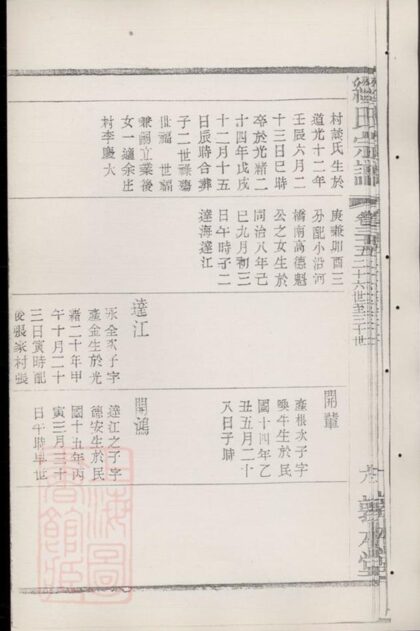 村談氏生於
道光十二年
壬辰六月二
十三日巳時
卒於光緒二
十四年戊戌
十二月十五
日辰時合葬
子二世祿繼
世福 世福
兼嗣立業後
女一適余庄
村李慶大
庚兼卯酉三
分配小沿河
橋南高德魁
公之女生於
同治八年己
巳九月初三
日午時子二
達海達江
達江
永全次子字
產金生於光
緒二十年甲
午十月二十
三日寅時配
後張家村張
開鴻
達江之子字
德安生於民
國十五年丙
寅三月三十
日午時早世
開輩
產根次子字
喚牛生於民
國十四年乙
丑五月二十
八日子時
氏宗譜
卷三十五
二十六世至三十世